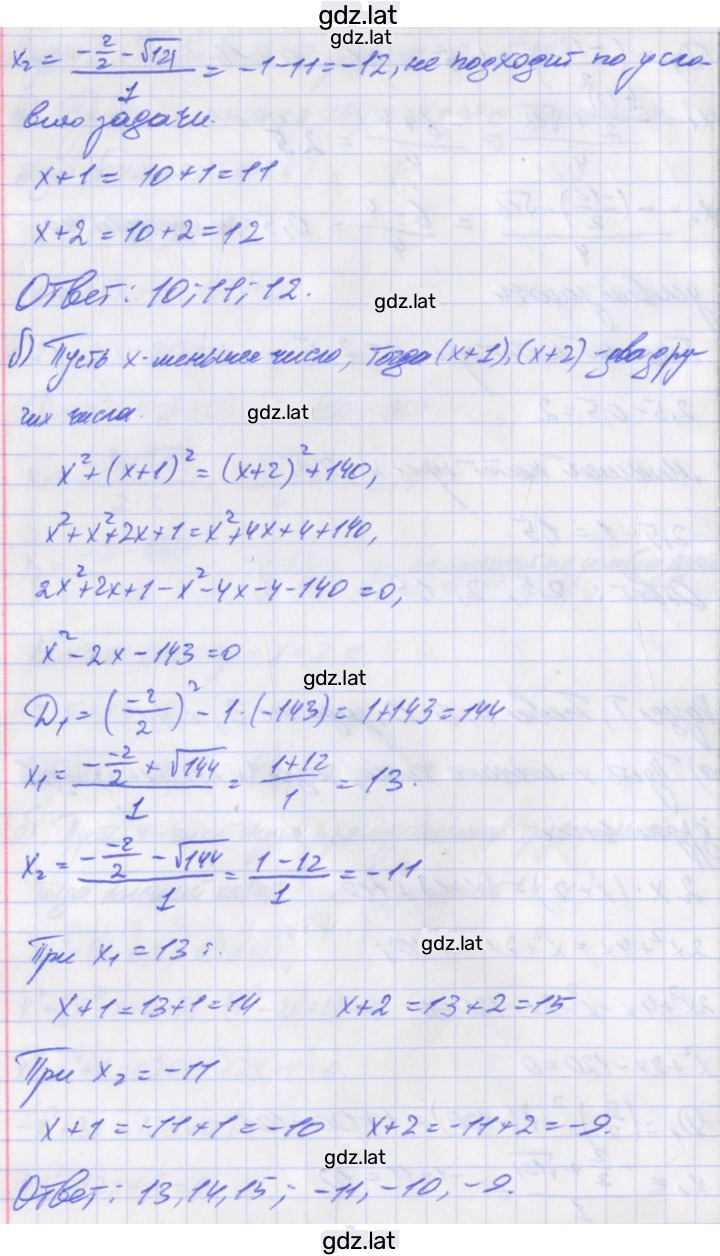 gdz.lat
gdz.lat
x₂ = (-2/2 - √121)/1 = -1-11 = -12, не подходит по усло-
вию задачи.
x+1 = 10+1 = 11
x+2 = 10+2 = 12
Ответ: 10; 11; 12.
gdz.lat
б) Пусть x - меньшее число, тогда (x+1), (x+2) - два дру-
гих числа.
gdz.lat
x² + (x+1)² = (x+2)² + 140,
x² + x² + 2x + 1 = x² + 4x + 4 + 140,
2x² + 2x + 1 - x² - 4x - 4 - 140 = 0,
x² - 2x - 143 = 0
gdz.lat
D₁ = (-2/2)² - 1·(-143) = 1+143 = 144
x₁ = (- -2/2 + √144)/1 = (1+12)/1 = 13.
x₂ = (- -2/2 - √144)/1 = (1-12)/1 = -11.
gdz.lat
При x₁ = 13:
x+1 = 13+1 = 14 x+2 = 13+2 = 15
При x₂ = -11
x+1 = -11+1 = -10 x+2 = -11+2 = -9.
gdz.lat
Ответ: 13, 14, 15; -11, -10, -9.
gdz.lat